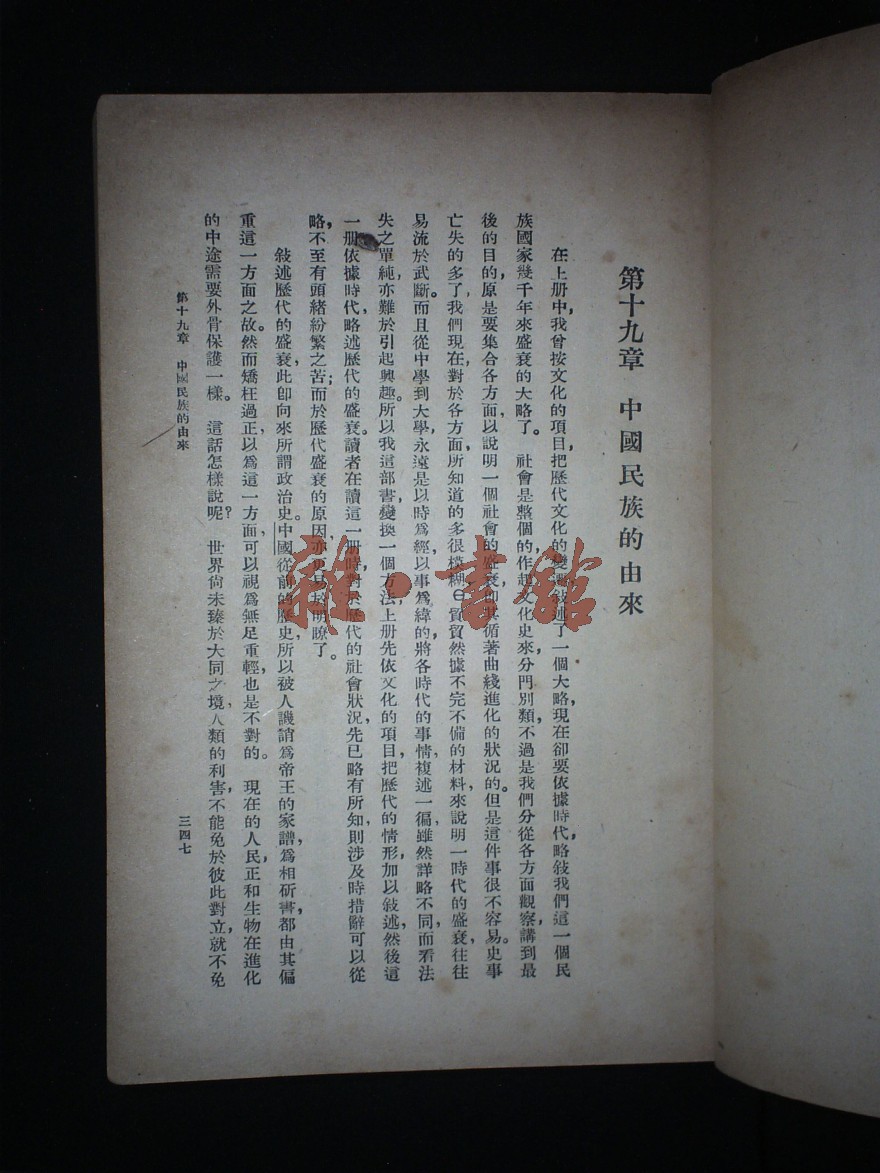 第十九章 中國民族的由來
在上册中，我曾按文化的項目，把歷代文化的變遷敍述了一個大略，現在卻要依據時代，略敍我們這一個民
族國家幾千年來盛衰的大略了。 社會是整個的，作起文化史來，分門別類，不過是我們分從各方面觀察，講到最
後的目的，原是要集合各方面，以說明一個社會的盛衰，即其循著曲綫進化的狀況的。但是這件事很不容易。史事
亡失的多了，我們現在，對於各方面，所知道的多很模糊㊀貿貿然據不完不備的材料，來說明一時代的盛衰，往往
易流於武斷。而且從中學到大學，永遠是以時爲經，以事爲緯的，將各時代的事情，複述一徧，雖然詳略不同，而看法
失之單純，亦難於引起興趣。所以我這部書，變換一個方法，上册先依文化的項目，把歷代的情形，加以敍述，然後這
一册依據時代，略述歷代的盛衰。讀者在讀這一册時，對於歷代的社會狀況，先已略有所知，則涉及時措辭可以從
略，不至有頭緒紛繁之苦；而於歷代盛衰的原因，亦更易於明瞭了。
敍述歷代的盛衰，此卽向來所謂政治史。中國從前的歷史，所以被人譏誚爲帝王的家譜，爲相斫書，都由其偏
重這一方面之故。然而矯枉過正，以爲這一方面，可以視爲無足重輕，也是不對的。 現在的人民，正和生物在進化
的中途需要外骨保護一樣。 這話怎樣說呢？ 世界尙未臻於大同之境，人類的利害，不能免於彼此對立，就不免
第十九章 中國民族的由來
三四七
雜·書館